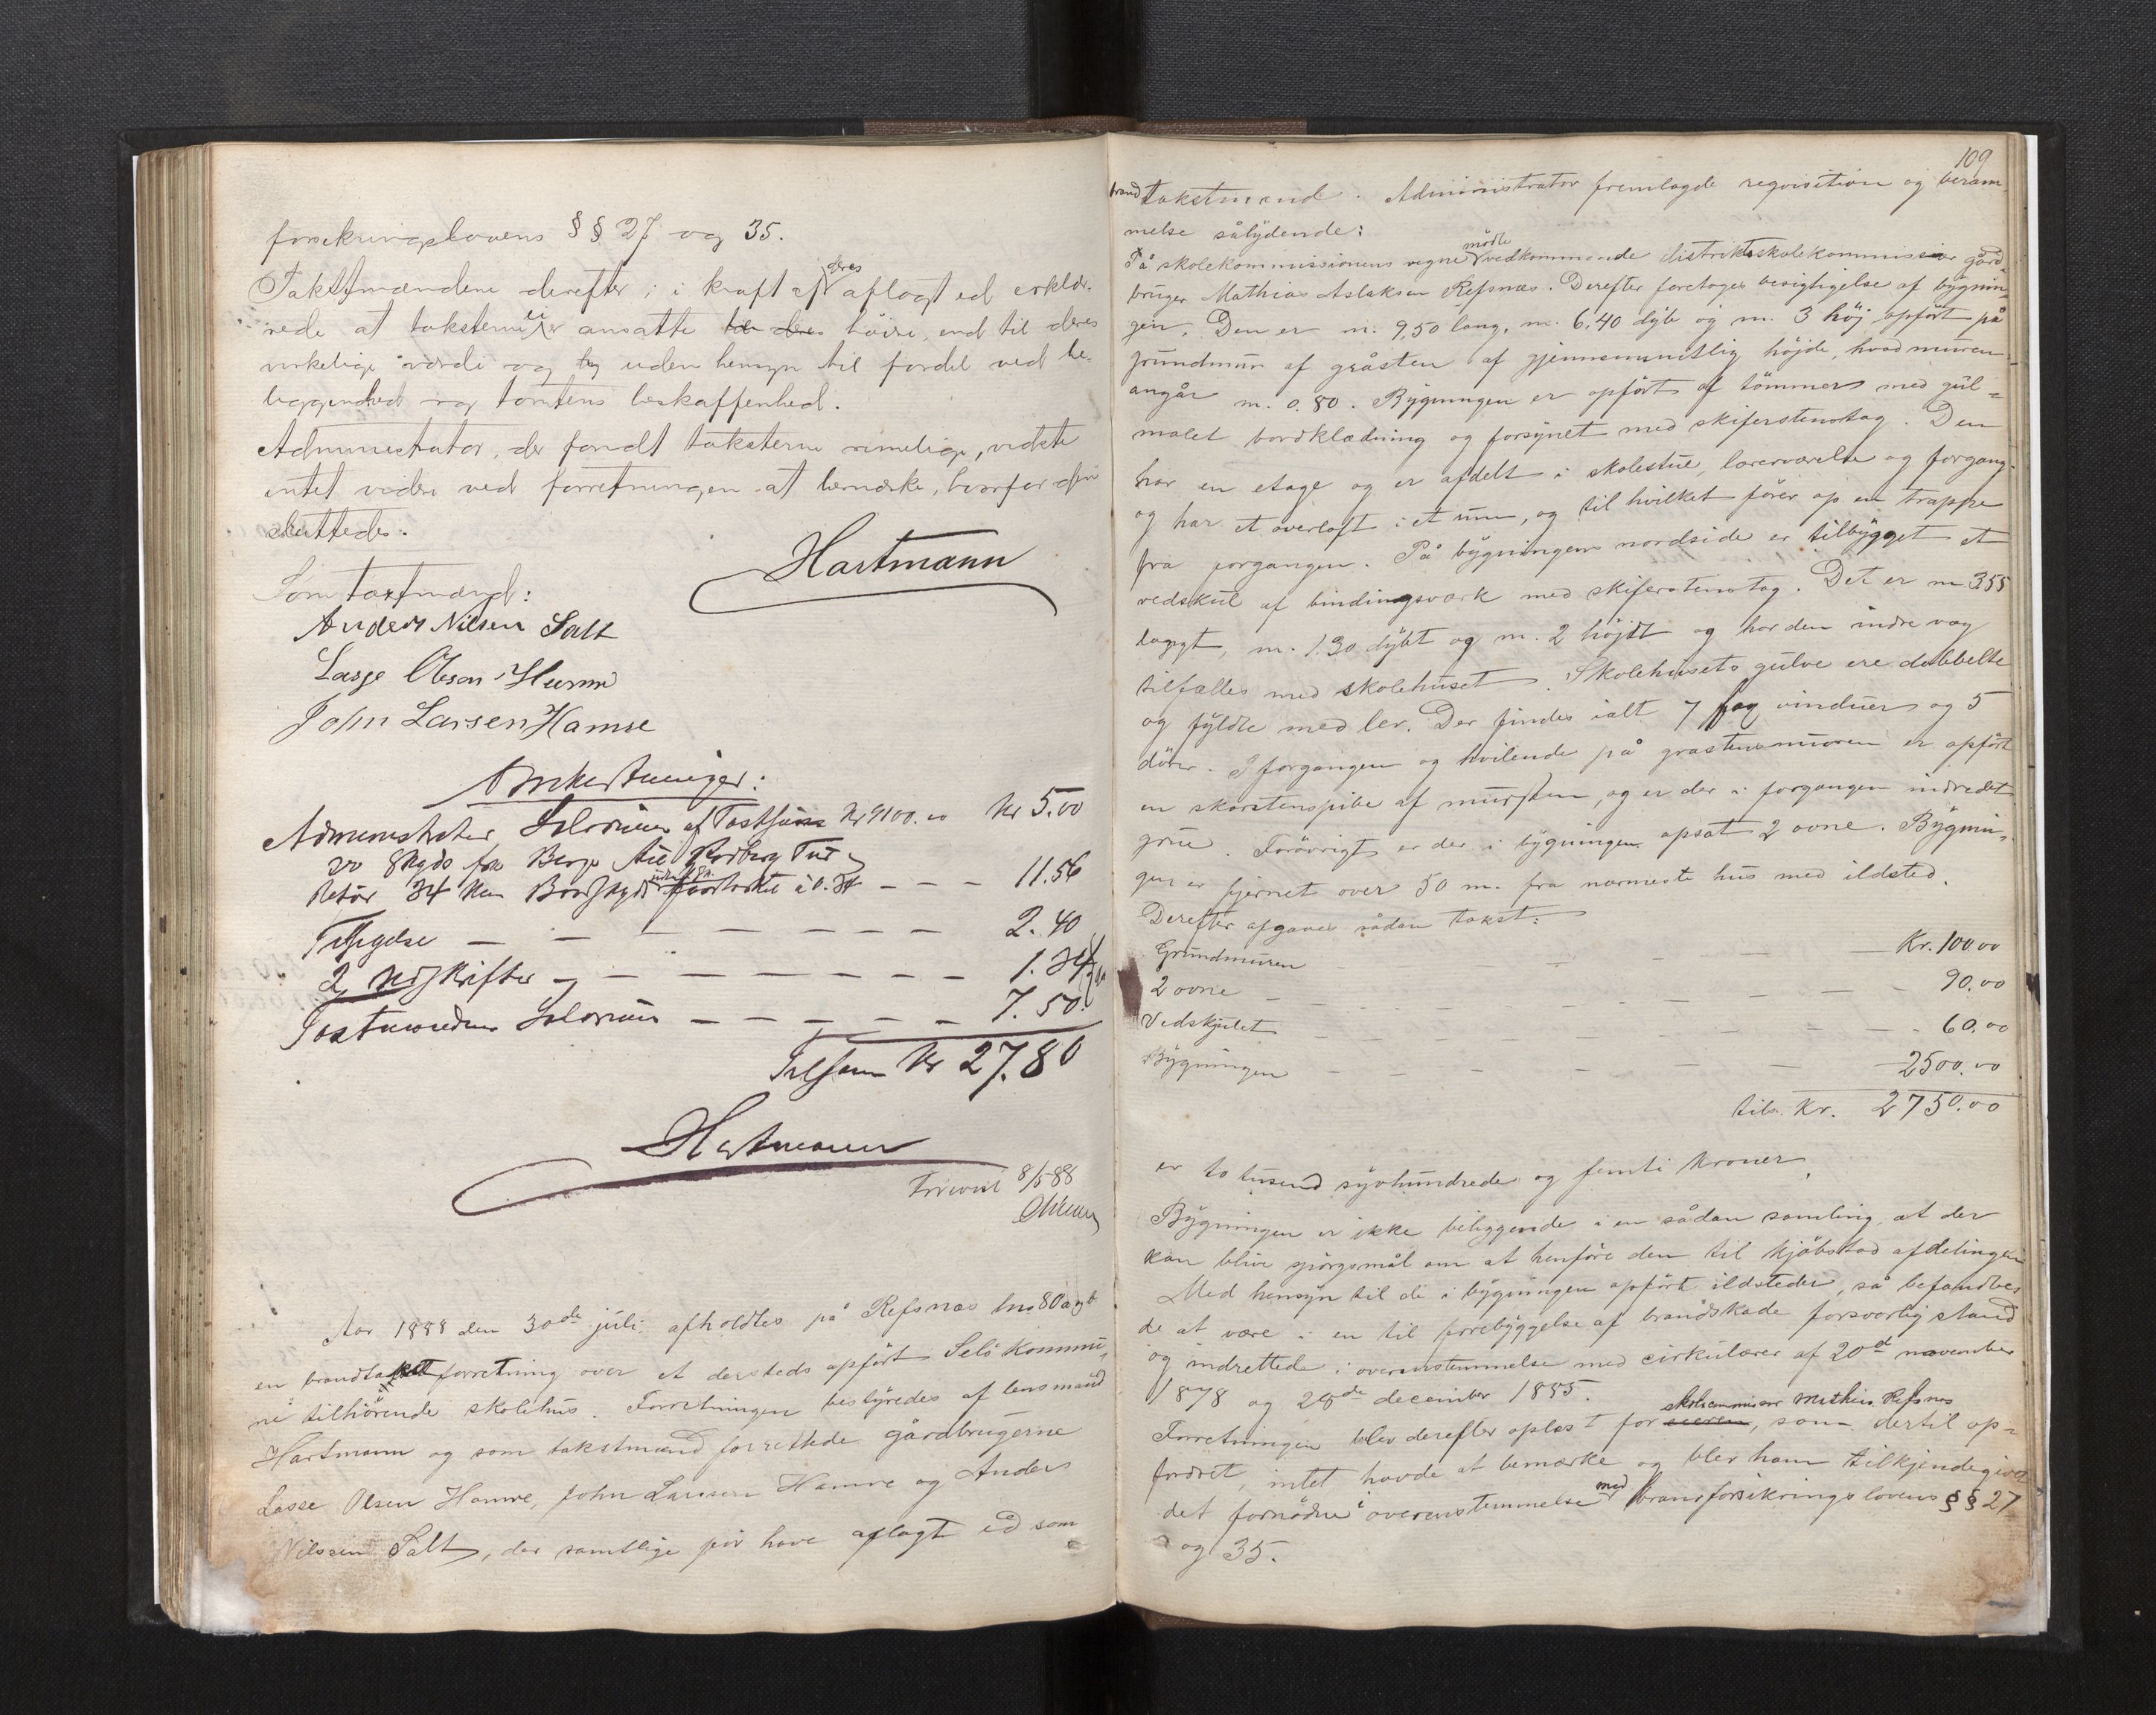 forsikringslovens §§ 27 og 35.
Takstmændene derefter; i kraft af deres aflagt ed erklæ-
rede at taksterne ei er ansatte höire, end til deres
virkelige værdi og uden hensyn til fordel ved be-
liggenhed og tomtens beskaffenhed.
Administrator, der fandt taksterne rimelige, vidste
intet videre ved forretningen at bemærke, hvorfor den
sluttedes.
Hartmann
Som taxtmænd:
Anders Nilsen Salt
Lasse Olsen Hamre
John Larsen Hamre
Omkostninger:
Administrator Salarium af Kr 9100.00 Kr 5.00
do Skyds fra Berge til Rodberg Tur og
Retur 34 Km Baadskyds á 0.34 — — — 11.56
— — — — — — — 2.40
2 Udskrifter — — — — — — 1.34
Taxtmændenes Salarium — — — — — — 7.50
Tilsam Kr 27.80
Hartmann
8/5 88
Aar 1888 den 30de juli afholdtes på Refsnæs lno 80 a og b
en brandtakstforretning over et dersteds opfört Selö kommu-
ne tilhörende skolehus. Forretningen bestyredes af lensmand
Hartmann og som takstmænd forrettede gårdbrugerne
Lasse Olsen Hamre, John Larsen Hamre og Anders
Nilssen Salt, der samtlige för have aflagt ed som
109
brandtakstmænd. Administrator fremlagde reqvisition og beram-
melse sålydende:
På skolekommissionens vegne mödte vedkommende distriktsskolekommissær gård-
bruger Mathias Aslaksen Refsnæs. Derefter foretoges besigtigelse af bygnin-
gen. Den er m. 9,50 lang, m. 6,40 dyb og m. 3 höj opfört på
grundmur af gråsten af gjennemsnitlig höjde, hvad muren
angår m. 0.80. Bygningen er opfört af tömmer med gul-
malet bordklædning og forsynet med skiferstenstag. Den
har en etage og er afdelt i skolestue, lærerværelse og forgang
og har et overloft i et rum, og til hvilket förer op en trappe
fra forgangen. På bygningens nordside er tilbygget et
vedskul af bindingsværk med skiferstenstag. Det er m. 3.55
langt, m. 1.30 dybt og m. 2 höjdt og har den indre væg
tilfælles med skolehuset. Skolehusets gulve ere dobbelte
og fyldte med ler. Der findes ialt 7 fag vinduer og 5
dörer. I forgangen og hvilende på gråstensmuren er opfört
en skorstenspibe af mursten, og er der i forgangen indredet
grue. Forövrigt er der i bygningen opsat 2 ovne. Bygnin-
gen er fjernet over 50 m. fra nærmeste hus med ildsted.
Derefter afgaves sådan takst:
Grundmuren — — — — Kr. 100.00
2 ovne — — — — — 90.00
Vedskjulet — — — — — 60.00
Bygningen — — — — — 2500.00
tils. Kr. 2750.00
er to tusend syvhundrede og femti kroner.
Bygningen er ikke beliggende i en sådan samling, at der
kan blive spörgsmål om at henföre den til kjöbstad afdelingen
Med hensyn til de i bygningen opfört ildsteder, så befandtes
de at være i en til forebyggelse af brandskade forsvarlig stand
og indrettede i overensstemmelse med cirkulærer af 20de november
1878 og 28de december 1885.
Forretningen blev derefter oplæst for eieren skolekommissær Mathias Refsnæs, som dertil op-
fordret, intet havde at bemærke og blev ham tilkjendegivet
det fornödne i overensstemmelse med brandforsikringslovens §§ 27
og 35.